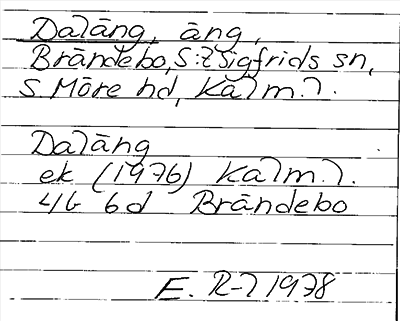 Daläng, äng,
Brändebo, S:t Sigfrids sn,
S Möre hd, Kalm. l.
Daläng
ek (1976) Kalm. l.
4G 6d Brändebo
E. R-l 1978